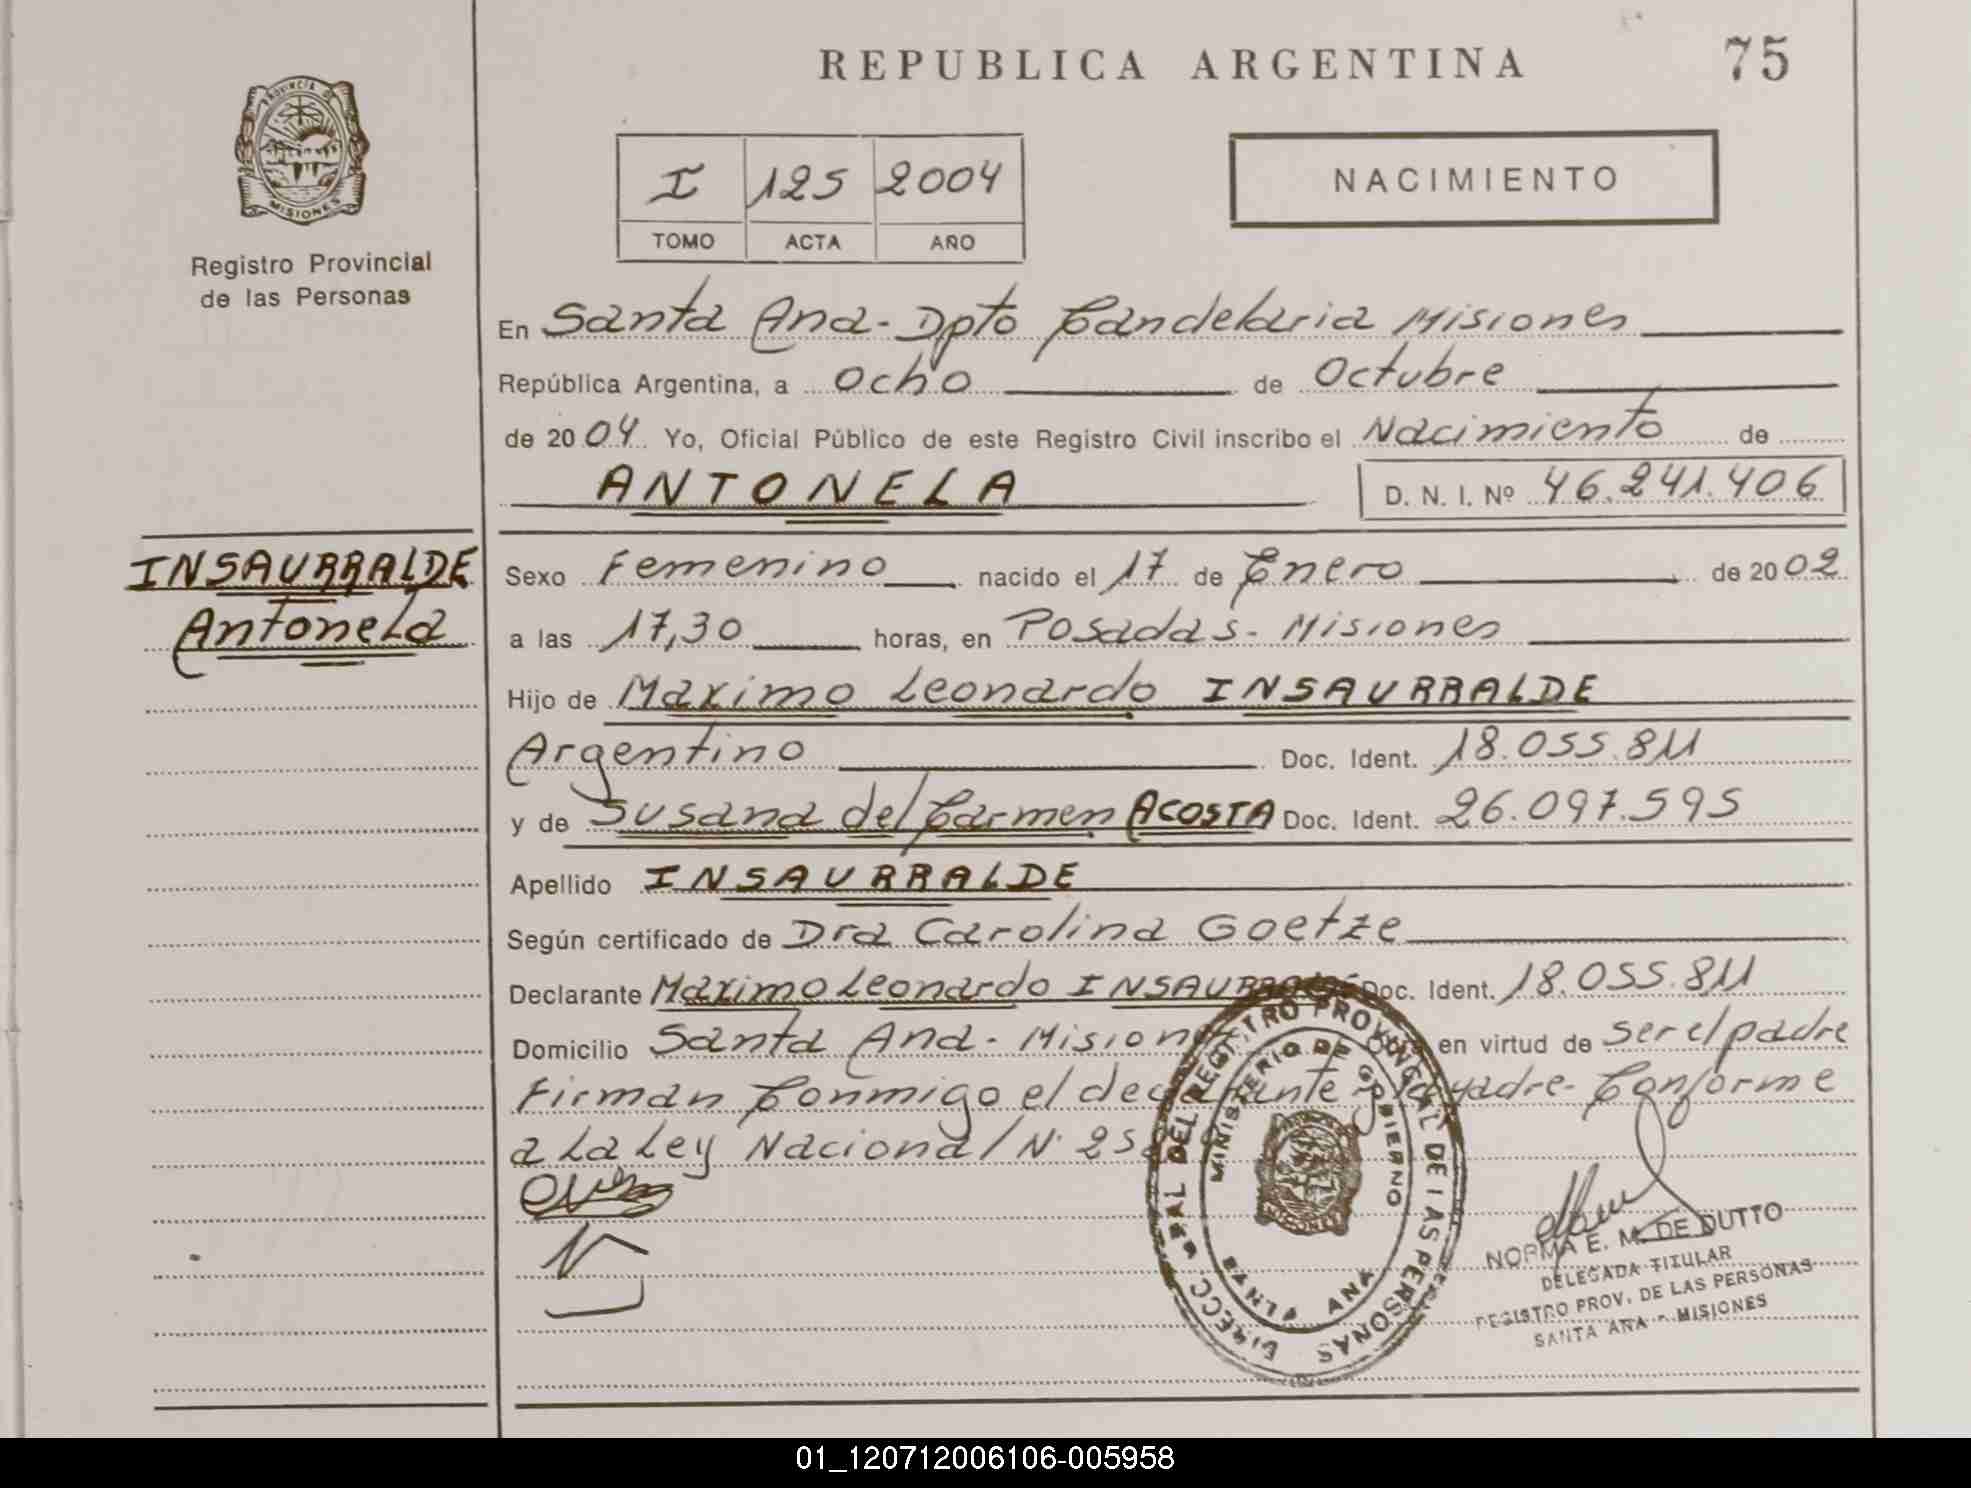 REPUBLICA ARGENTINA
75
PROVINCIA DE
MISIONES
Registro Provincial
de las Personas
I 125 2004
TOMO ACTA AÑO
NACIMIENTO
En Santa Ana - Dpto Candelaria Misiones
República Argentina, a Ocho de Octubre
de 2004 Yo, Oficial Público de este Registro Civil inscribo el Nacimiento de
ANTONELA
D. N. I. Nº 46.241.406
INSAURRALDE
Antonela
Sexo Femenino nacido el 17 de Enero de 2002
a las 17,30 horas, en Posadas - Misiones
Hijo de Maximo Leonardo INSAURRALDE
Argentino Doc. Ident. 18.055.811
y de Susana del Carmen ACOSTA Doc. Ident. 26.097.595
Apellido INSAURRALDE
Según certificado de Dra Carolina Goetze
Declarante Maximo Leonardo INSAURRALDE Doc. Ident. 18.055.811
Domicilio Santa Ana - Misiones en virtud de ser el padre
Firman Conmigo el declarante y la madre - Conforme
a La Ley Nacional Nº
DIRECC. GRAL DEL REGISTRO PROVINCIAL DE LAS PERSONAS
MINISTERIO DE GOBIERNO
SANTA ANA
NORMA E. M. DE DUTTO
DELEGADA TITULAR
REGISTRO PROV. DE LAS PERSONAS
SANTA ANA - MISIONES
01_120712006106-005958